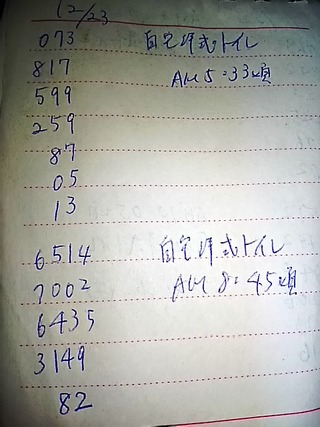 12/23
073 自宅洋式トイレ
817 AM5:33頃
599
259
87
05
13
6514 自宅洋式トイレ
7002 AM8:45頃
6435
3149
82